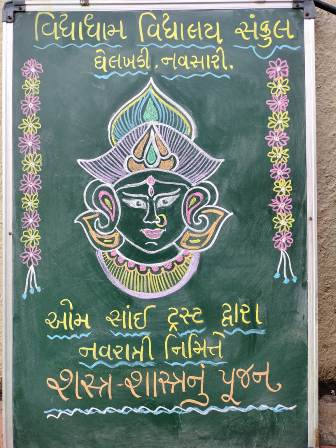 વિદ્યાધામ વિદ્યાલય સંકુલ
ઘેલખડી, નવસારી.
ઓમ સાંઈ ટ્રસ્ટ દ્વારા
નવરાત્રી નિમિત્તે
શસ્ત્ર-શાસ્ત્રનું પૂજન